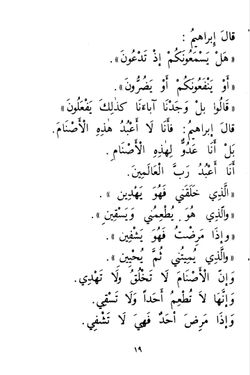 قالَ إِبراهيمُ :
«هَلْ يَسْمَعُونَكُمْ إِذْ تَدْعُونَ».
«أَوْ يَنْفَعُونَكُمْ أَوْ يَضُرُّونَ».
«قَالُوا بلْ وَجَدْنَا آباءَنَا كَذٰلِكَ يَفْعَلُونَ»
قالَ إبراهيمُ: فأَنَا لَا أَعْبُدُ هٰذِهِ الْأَصْنَامَ.
بَلْ أَنَا عَدُوٌّ لِهذِهِ الْأَصْنَامِ.
أَنَا أَعْبُدُ رَبَّ الْعَالَمِينَ.
«الَّذِي خَلَقَنِي فَهُوَ يَهْدِينِ».
«والَّذِي هُوَ يُطْعِمُنِي وَيَسْقِينِ».
«وَإذَا مَرِضْتُ فَهُوَ يَشْفِينِ».
«والَّذِي يُمِيتُنِي ثُمَّ يُحْيِينِ».
وَإِنَّ الْأَصْنَامَ لَا تَخْلُقُ وَلَا تَهْدِي.
وَإِنَّهَا لَا تُطْعِمُ أَحَداً وَلَا تَسْقِي.
وَإِذَا مَرِضَ أَحَدٌ فَهِيَ لَا تَشْفِي.
١٩